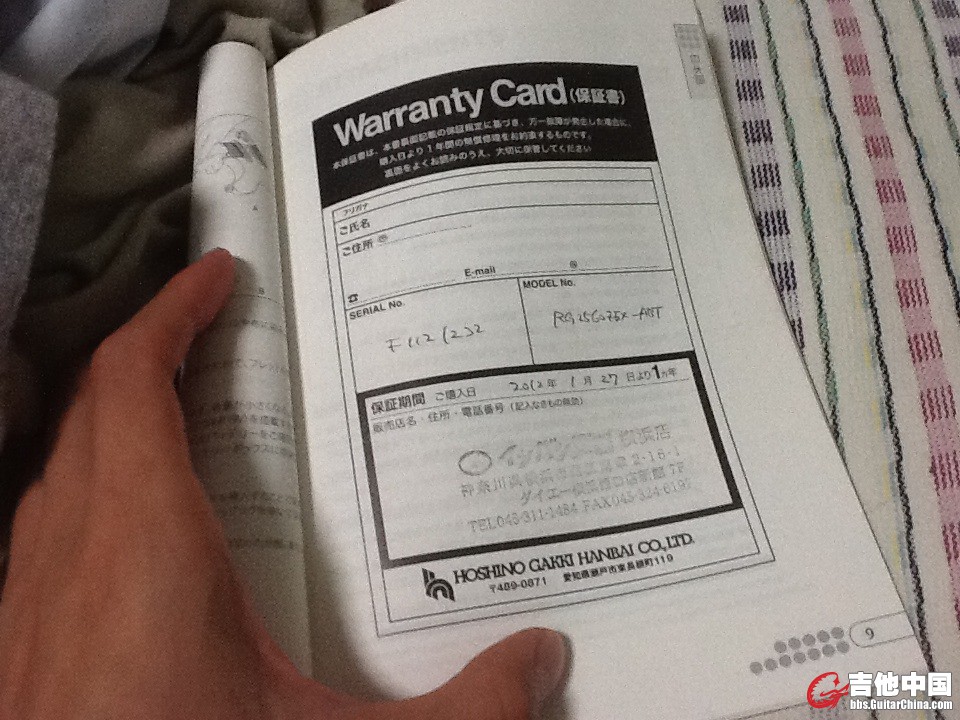 Warranty Card(保証書)
本保証書は、本書裏面記載の保証規定に基づき、万一故障が発生した場合に、
購入日より1年間の無償修理をお約束するものです。
裏面をよくお読みのうえ、大切に保管してください
フリガナ
ご氏名
ご住所 〒
☎
E-mail
@
SERIAL No.
MODEL No.
F1121232
保証期間 ご購入日 2012年 1月 27日より1ヵ年
販売店名・住所・電話番号(記入なきもの無効)
イシバシ楽器 横浜店
神奈川県横浜市西区南幸2-16-1
ダイエー横浜西口店新館7F
TEL045-311-1484 FAX045-324-6197
HOSHINO GAKKI HANBAI CO.,LTD.
〒489-0871 愛知県瀬戸市東長根町119
日本語
9
吉他中国
bbs.GuitarChina.com